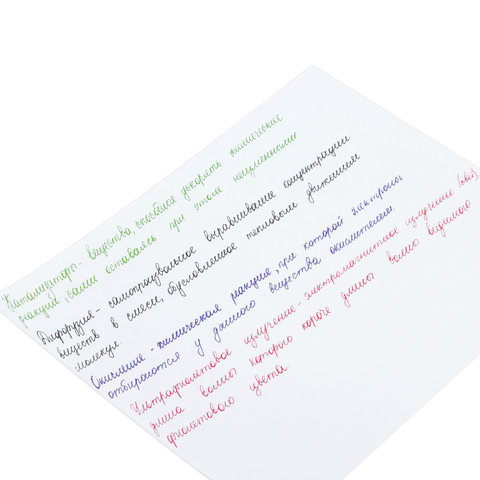 Катализаторы - вещества, способные ускорять химические
реакции, сами оставаясь при этом неизменными
Диффузия - самопроизвольное выравнивание концентрации
веществ в смеси, обусловленное тепловым движением
молекул.
Окисление - химическая реакция, при которой электроны
отбираются у данного вещества окислителем.
Ультрафиолетовое излучение - электромагнитное излучение (овой),
длина волны которого короче длины волны видимого
фиолетового цвета.